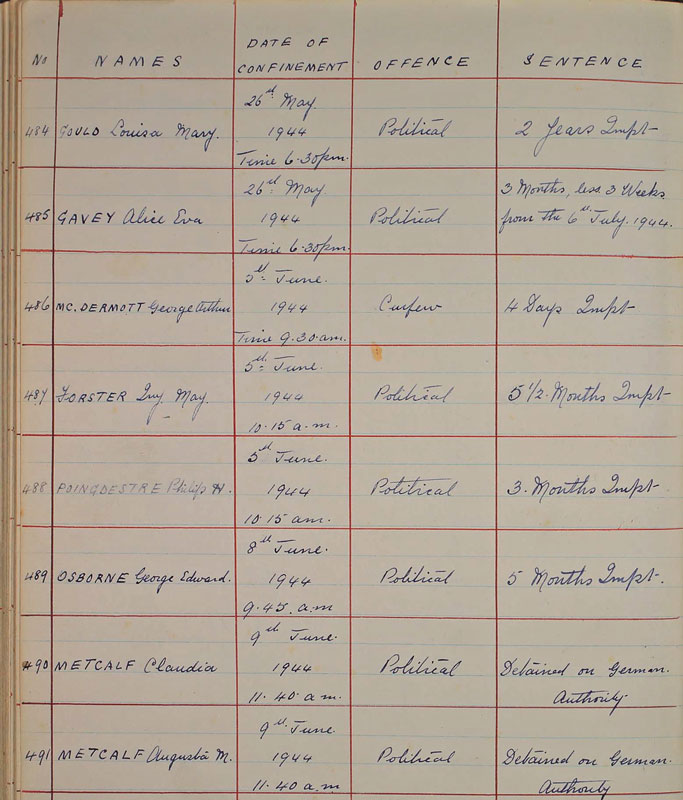 No NAMES DATE OF CONFINEMENT OFFENCE SENTENCE
26th May
484 GOULD Louisa Mary. 1944 Political 2 Years Impt
Time 6.30pm.
26th May 3 Months, less 3 Weeks
485 GAVEY Alice Eva 1944 Political from the 6th July. 1944.
Time 6.30pm.
5th June.
486 MC. DERMOTT George Arthur 1944 Curfew 4 Days Impt
Time 9.30.am.
5th June.
487 FORSTER Ivy May. 1944 Political 5 1/2. Months Impt
10.15 a.m.
5th June.
488 POINGDESTRE Philip H. 1944 Political 3. Months Impt
10.15 am.
8th June.
489 OSBORNE George Edward. 1944 Political 5 Months Impt.
9.45. a.m
9th June.
490 METCALF Claudia 1944 Political Detained on German.
11.40 a m. Authority
9th June
491 METCALF Augusta M. 1944 Political Detained on German.
11.40 a.m Authority